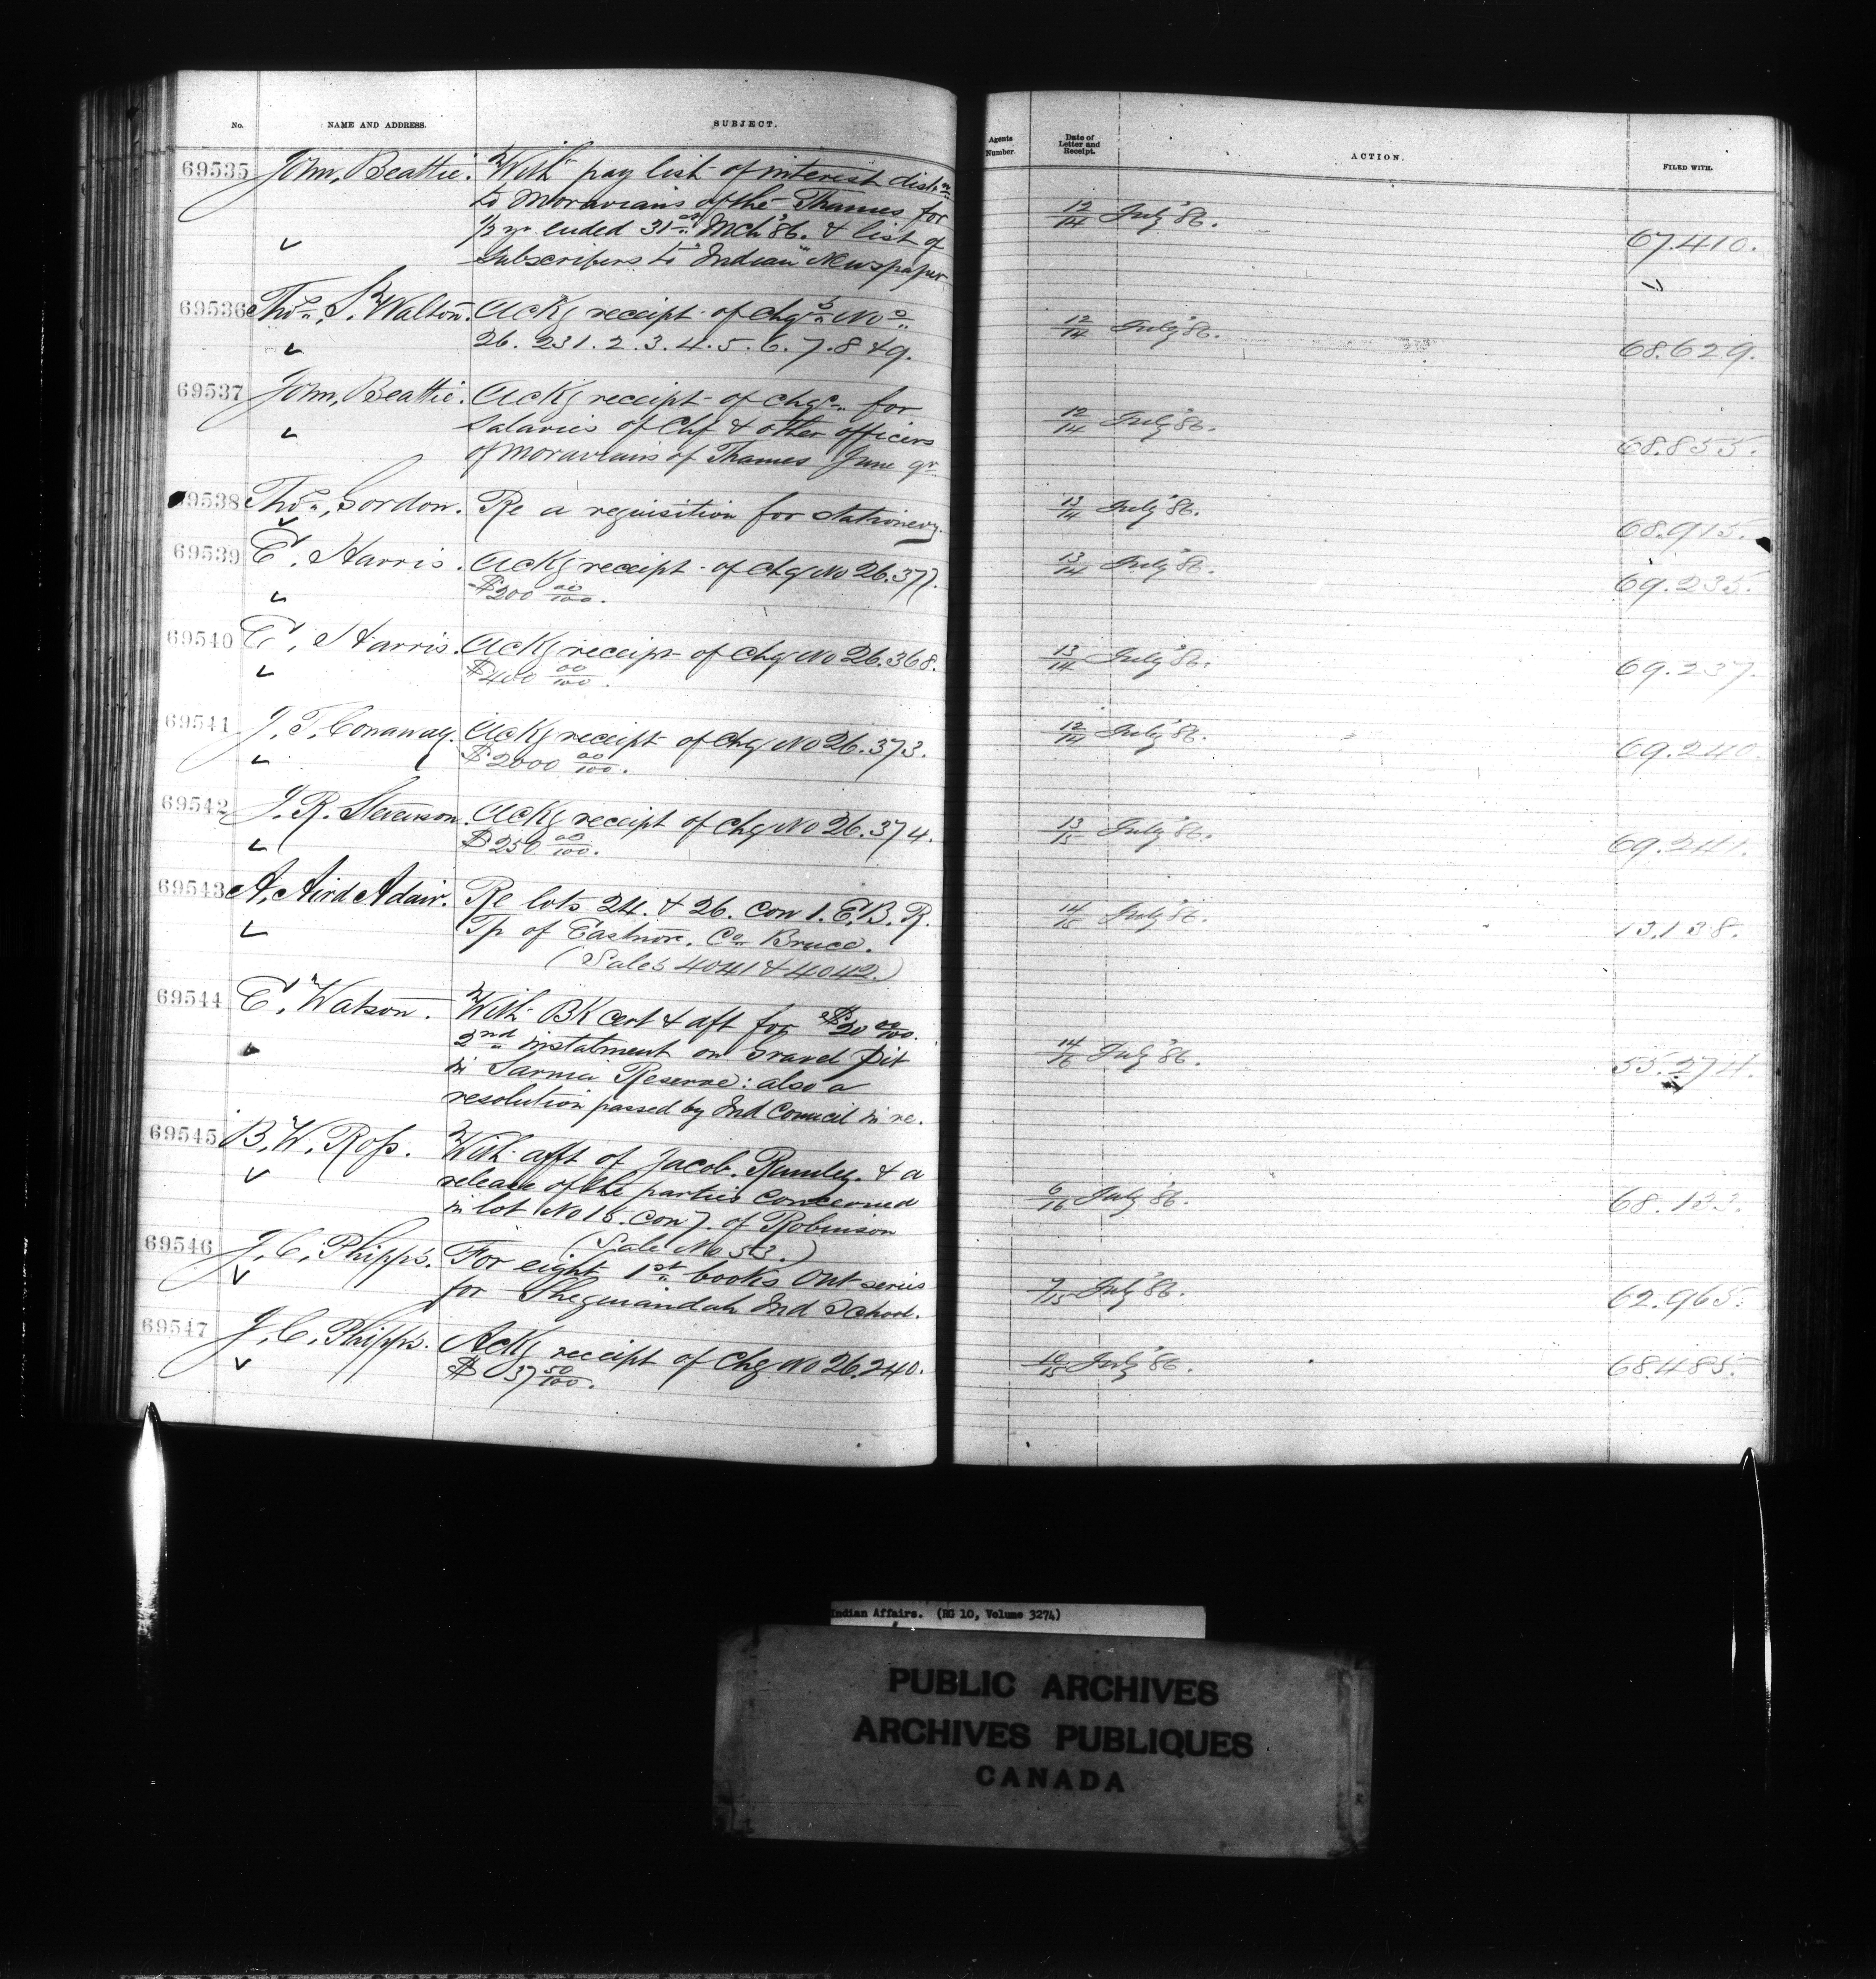 No. NAME AND ADDRESS. SUBJECT. Agents Number. Date of Letter and Receipt. ACTION. FILED WITH.
69535 John, Beattie. With pay list of interest distn
to Moravians of the Thames for 12/14 July '86.
½ yr ended 31st Mch '86. & list of 67.410.
Subscribers to "Indian" Newspaper
69536 Thos, S. Walton. Ackg receipt of chqs Nos 12/14 July '86.
26. 231. 2. 3. 4. 5. 6. 7. 8 & 9. 68.629.
69537 John, Beattie. Ackg receipt of chqe for
Salaries of Chf & other officers 12/14 July '86.
of Moravians of Thames June qr 68.855.
69538 Thos, Gordon. Re a requisition for stationery. 13/14 July '86. 68.915.
69539 E, Harris. Ackg receipt of chq No 26.377. 13/14 July '86.
$200 00/100. 69.235.
69540 E, Harris. Ackg receipt of chq No 26.368. 13/14 July '86.
$400 00/100. 69.237.
69541 J, T, Conaway. Ackg receipt of chq No 26.373. 12/14 July '86.
$2000 00/100. 69.240.
69542 J. R. Stevenson. Ackg receipt of chq No 26.374. 13/15 July '86.
$250 00/100. 69.241.
69543 A, Aird Adair. Re lots 24. & 26. Con 1. E.B.R. 14/15 July '86.
Tp of Eastnor. Co Bruce. 13.138.
(Sales 4041 & 4042.)
69544 E, Watson. With BK cert & aft for $20 00/100.
2nd instalment on Gravel Pit 14/16 July '86.
in Sarnia Reserve: also a 55.274.
resolution passed by Ind Council in re.
69545 B, W, Ross. With afft of Jacob. Rumley. & a
release of the parties concerned 6/16 July '86.
in lot No 15. Con 7. of Robinson 68.133.
(Sale No 53.)
69546 J, C, Phipps. For eight 1st books Ont series 7/15 July '86.
for Sheguiandah Ind School. 62.965.
69547 J, C, Phipps. Ackg receipt of Chq No 26.240. 10/15 July '86.
$37 50/100. 68.485.
Indian Affairs. (RG 10, Volume 3274)
PUBLIC ARCHIVES
ARCHIVES PUBLIQUES
CANADA